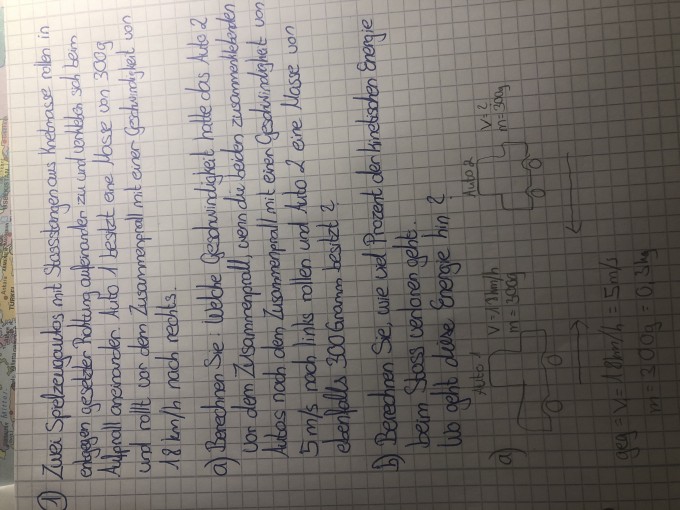 1) Zwei Spielzeugautos mit Stossstangen aus Knetmasse rollen in
entgegen gesetzter Richtung aufeinander zu und verkleben sich beim
Aufprall aneinander. Auto 1 besitzt eine Masse von 300g
und rollt vor dem Zusammenprall mit einer Geschwindigkeit von
18 km/h nach rechts.
a) Berechnen Sie: Welche Geschwindigkeit hatte das Auto 2
vor dem Zusammenprall, wenn die beiden zusammenklebenden
Autos nach dem Zusammenprall mit einer Geschwindigkeit von
5 m/s nach links rollen und Auto 2 eine Masse von
ebenfalls 300 Gramm besitzt?
b) Berechnen Sie, wie viel Prozent der kinetischen Energie
beim Stoss verloren geht.
Wo geht diese Energie hin?
a) Auto 1 V=18km/h m=300g
Auto 2 V=? m=300g
geg = V=18km/h = 5m/s
m=300g = 0,3kg